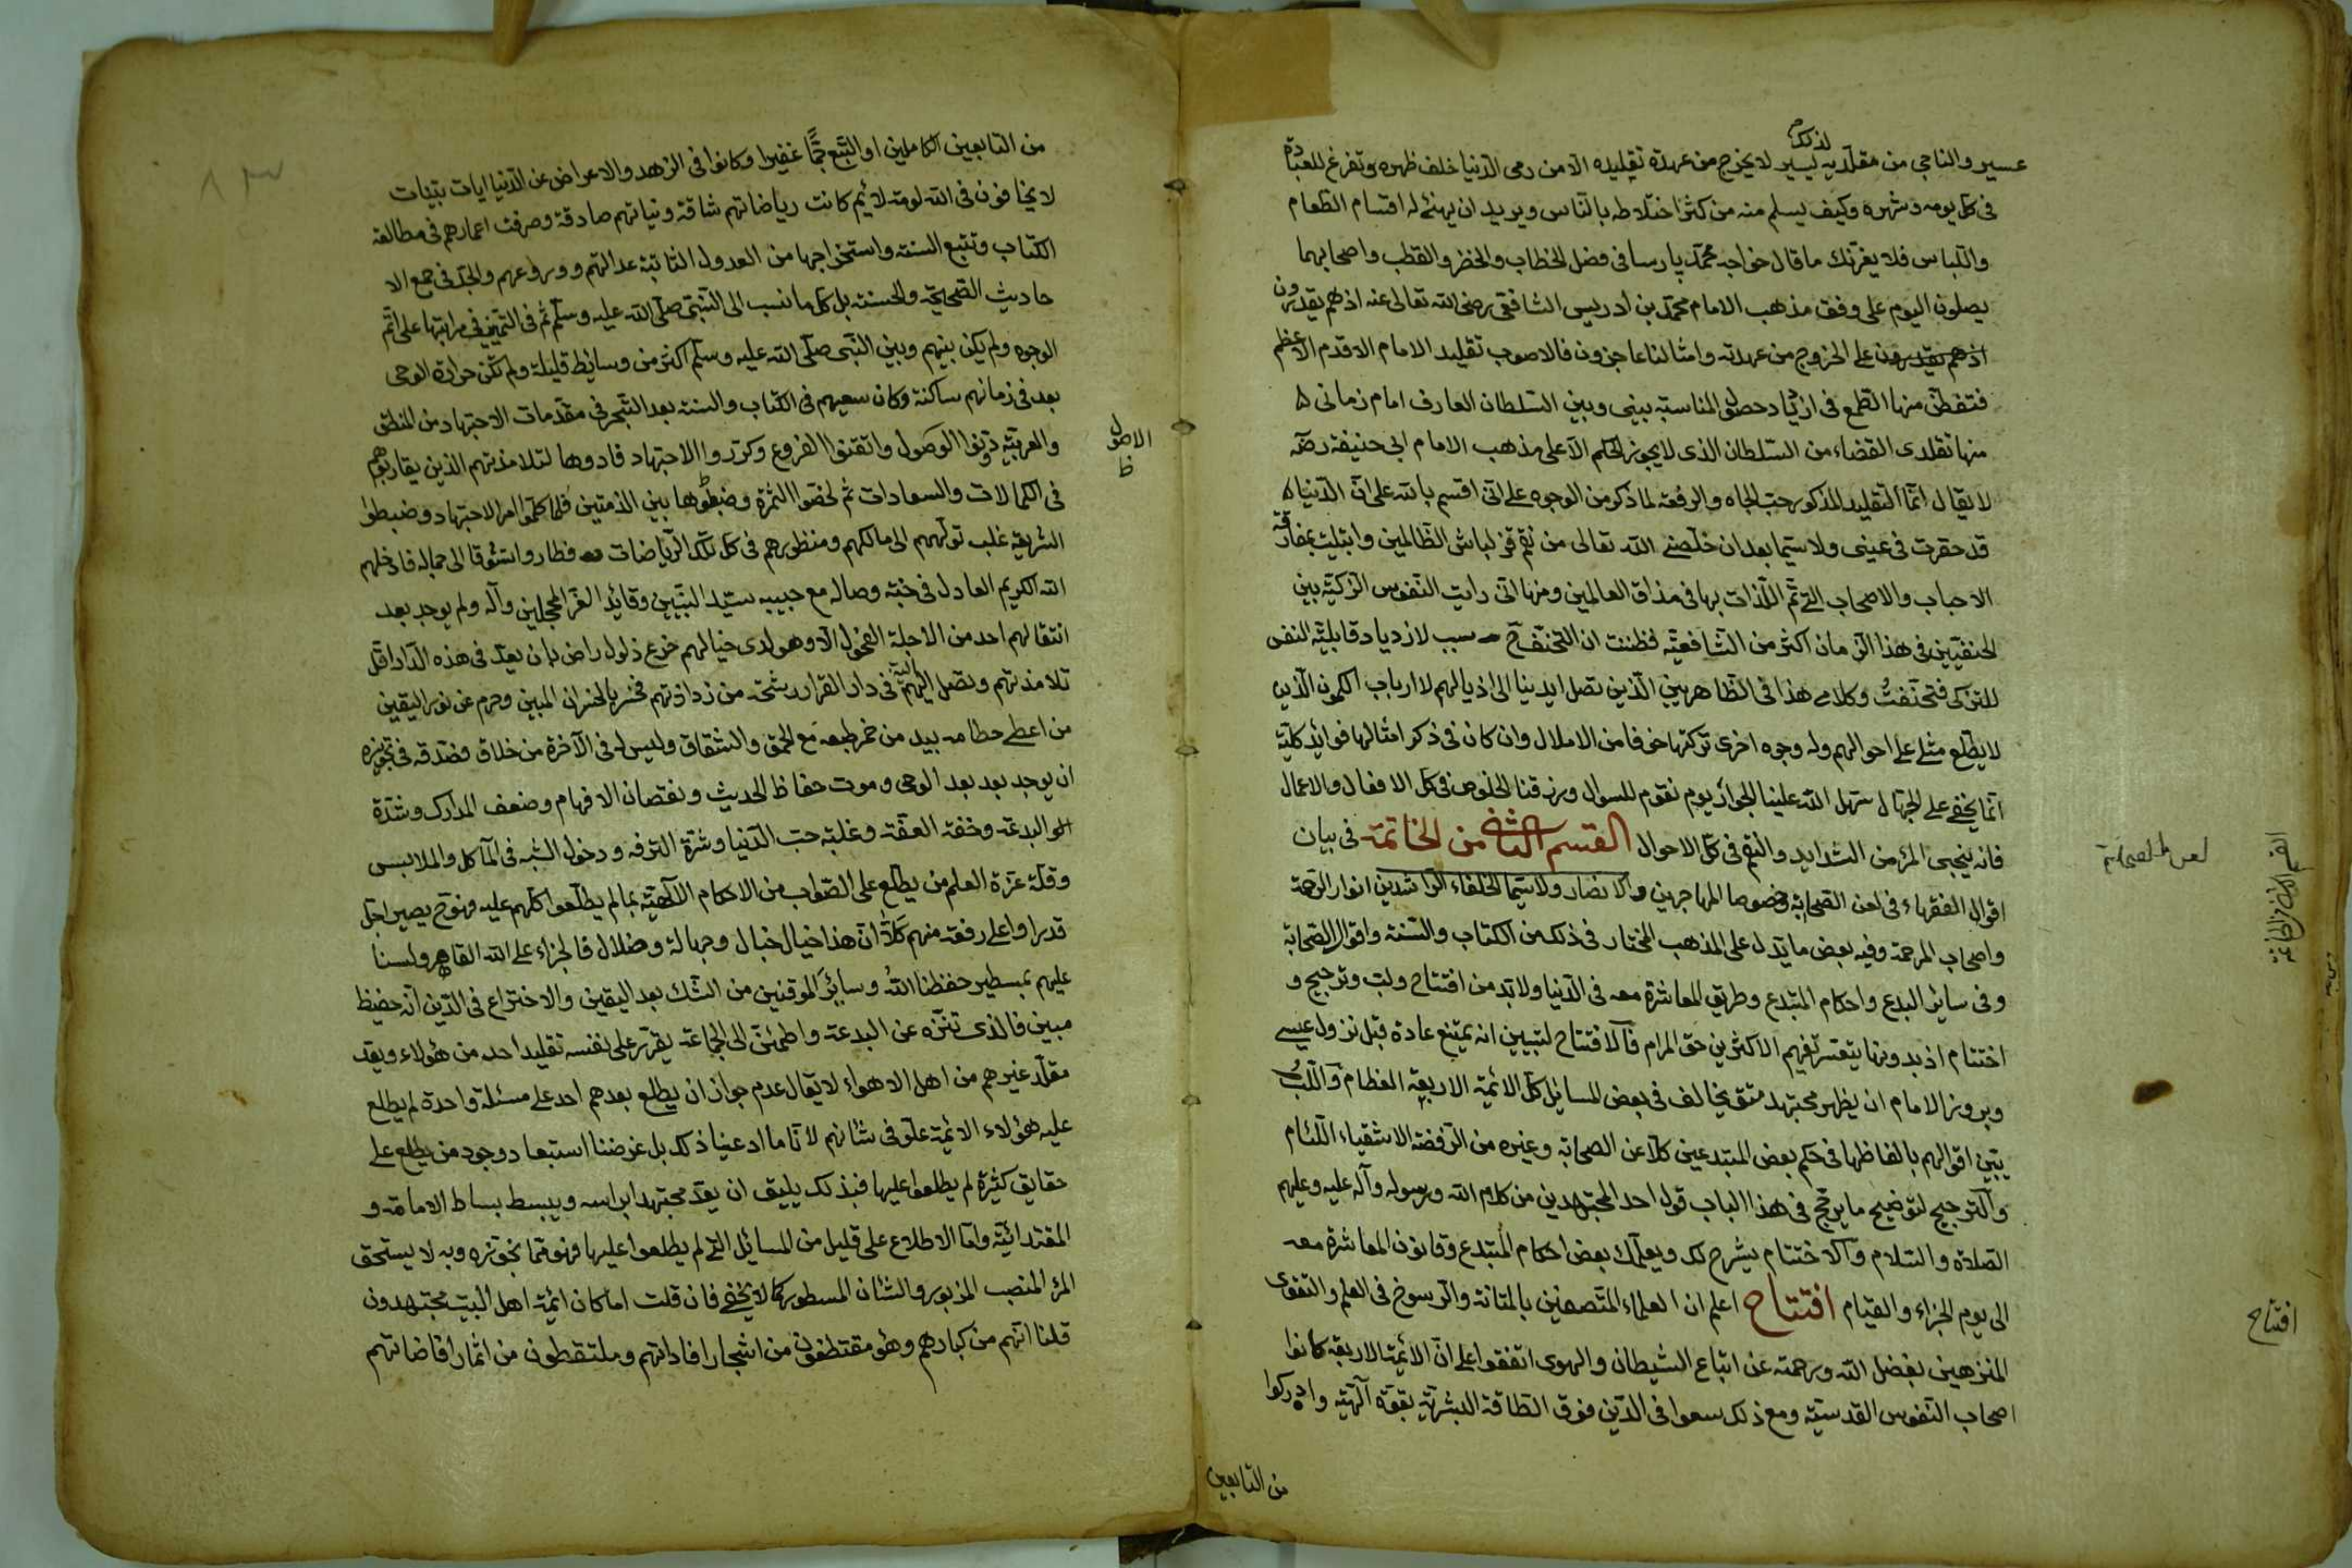 لذلك
عسير والناجي من مقلديه يسير لا يخرج من عهدة تقليده الا من رمى الدنيا خلف ظهره وتفرغ للعبادة
في كل يومه وشهره وكيف يسلم منه من كثر اختلاطه بالناس ويريد ان يهنئ له اقسام الطعام
واللباس فلا يغرنك ما قال خواجه محمد پارسا في فضل الخطاب والخضر والقطب واصحابهما
يصلون اليوم على وفق مذهب الامام محمد بن ادريس الشافعي رضي الله تعالى عنه اذ هم يقدرون
اذ هم يقدرون على الخروج من عهدته وامثالنا عاجزون فالاصوب تقليد الامام الاقدم الاعظم
فتفطن منها الطمع في ازدياد حصول المناسبة بيني وبين السلطان العارف امام زماني
منها تقلدي القضاء من السلطان الذي لا يجوز الحكم الا على مذهب الامام ابي حنيفة رضه
لا يقال انما التقليد المذكور حب الجاه والرفعة لما ذكر من الوجوه على اني اقسم بالله على ان الدنيا
قد حقرت في عيني ولا سيما بعد ان خلصني الله تعالى من قزلباش الظالمين وابتليت بمفارقة
الاحباب والاصحاب التي تم اللذات بها في مذاق العالمين ومنها اني رايت النفوس الزكية بين
الحنفيين في هذا الزمان اكثر من الشافعية فظننت ان التحنف سبب لازدياد قابلية النفس
للتزكي فتحنفت وكلامي هذا في الظاهريين الذين تصل ايدينا الى اذيالهم لا ارباب الكمون الذين
لا يطلع مثلي على احوالهم وله وجوه اخرى تركتها خوفا من الاملال وان كان في ذكر امثالها فوائد كلية
انما يخفى على الجهال سهل الله علينا الجواز يوم نقوم للسوال ورزقنا الخلوص في كل الافعال والاعمال
فانه ينجي المرء من الشدايد والنقم في كل الاحوال القسم الثاني من الخاتمة في بيان
اقوال الفقهاء في لعن الصحابة وخصوصا المهاجرين والانصار ولا سيما الخلفاء الراشدين انوار الرحمة
واصحاب المرحمة وفيه بعض ما يدل على المذهب المختار في ذلك من الكتاب والسنة واقوال الصحابة
وفي سائر البدع واحكام المبتدع وطريق المعاشرة معه في الدنيا ولا بد من افتتاح ولب وترجيح و
اختتام اذ بدونها يتعسر تفهيم الاكثرين حق المرام فالافتتاح لتبيين انه يمتنع عادة قبل نزول عيسى
وبروز الامام ان يظهر مجتهد متق يخالف في بعض المسائل كل الائمة الاربعة العظام واللب
يبين اقوالهم بالفاظها في حكم بعض المبتدعين كلاعن الصحابة وغيره من الرفضة الاشقياء اللئام
والترجيح لتوضيح ما يرجح في هذا الباب قول احد المجتهدين من كلام الله ورسوله وآله عليه وعليهم
الصلاة والسلام والاختتام يشرح لك ويعلمك بعض احكام المبتدع وقانون المعاشرة معه
الى يوم الجزاء والقيام افتتاح اعلم ان العلماء المتصفين بالمتانة والرسوخ في العلم والتقوى
المنزهين بفضل الله ورحمته عن اتباع الشيطان والهوى اتفقوا على ان الائمة الاربعة كانوا
اصحاب النفوس القدسية ومع ذلك سعوا في الدين فوق الطاقة البشرية بقوة الهية وادركوا
من التابعين
لعن الصحابة
القسم الثاني من الخاتمة
افتتاح
من التابعين الكاملين او التبع جما غفيرا وكانوا في الزهد والاعراض عن الدنيا ايات بينات
لا يخافون في الله لومة لائم كانت رياضاتهم شاقة ونياتهم صادقة وصرفت اعمارهم في مطالعة
الكتاب وتتبع السنة واستخراجها من العدول الثابتة عدالتهم وورعهم والجد في جمع الا
حاديث الصحيحة والحسنة بل كل ما نسب الى النبي صلى الله عليه وسلم ثم في التمييز في مراتبها على اتم
الوجوه ولم يكن بينهم وبين النبي صلى الله عليه وسلم اكثر من وسائط قليلة ولم تكن حرارة الوحي
بعد في زمانهم ساكنة وكان سعيهم في الكتاب والسنة بعد التبحر في مقدمات الاجتهاد من المنطق
والعربية دونوا الوصول واتقنوا الفروع وكرروا الاجتهاد فادوها لتلامذتهم الذين يقاربوهم
في الكمالات والسعادات ثم لخصوا الثمرة وضبطوها بين الدفتين فلما كملوا امر الاجتهاد وضبطوا
الشريعة غلب تولههم الى مالكهم ومنظورهم في كل تلك الرياضات فطاروا شوقا الى جماله فادخلهم
الله الكريم العادل في جنة وصاله مع حبيبه سيد النبيين وقائد الغر المحجلين وآله ولم يوجد بعد
انتقالهم احد من الاجلة الفحول الا وهو لدى خيالهم خرع ذلول راض بان يعد في هذه الدار اقل
تلامذتهم وتصل اليه في دار القرار رشحة من زادتهم فخسر بالخسران المبين وحرم عن نور اليقين
من اعطى حطامه بيد من خمر طبعه مع الحمق والشقاق وليس له في الآخرة من خلاق فصدقه في تجويزه
ان يوجد بعد بعد الوحي وموت حفاظ الحديث ونقصان الافهام وضعف المدارك وشدة
البدعة وخفة العفة وغلبة حب الدنيا وشرة الترفه ودخول الشبه في المآكل والملابس
وقلة عزة العلم من يطلع على الصواب من الاحكام الالهية بما لم يطلعوا كلهم عليه فهو ح يصير اجل
قدرا واعلى رفعة منهم كلا ان هذا خيال خبال وجهالة وضلال فالجزاء على الله القاهر ولسنا
عليهم بمسطير حفظنا الله وسائر الموقنين من الشك بعد اليقين والاختراع في الدين انه حفيظ
مبين فالذي تنزه عن البدعة واطمئن الى الجماعة يقرر على نفسه تقليد احد من هؤلاء ويقد
مقلد غيرهم من اهل الاهواء لا يقال عدم جواز ان يطلع بعدهم احد على مسئلة واحدة لم يطلع
عليه هؤلاء الائمة علو في شانهم لانا ما ادعينا ذلك بل غرضنا استبعاد وجود من يطلع على
حقايق كثيرة لم يطلعوا عليها فبذلك يليق ان يعد مجتهدا براسه ويبسط بساط الامامة و
المقتدائية واما الاطلاع على قليل من المسائل التي لم يطلعوا عليها فهو مما نجوزه وبه لا يستحق
المرء المنصب المزبور والشان المسطور كما لا يخفى فان قلت اما كان ائمة اهل البيت مجتهدون
قلنا انهم من كبارهم وهؤ مقتطفون من اشجار افاداتهم وملتقطون من اثمار افاضاتهم
الاصول
ظ